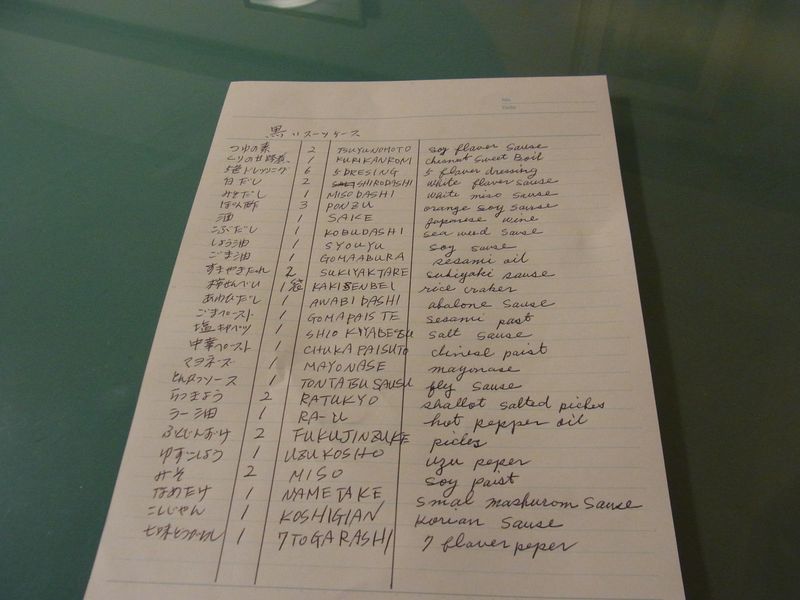 黒いスーツケース
つゆの素 2 TSUYUNOMOTO Soy flavor Sause
くりの甘路煮 1 KURIKANRONI chesnut Sweet Boil
5色ドレッシング 6 5 DRESING 5 flavor dressing
白だし 2 SHIRODASHI white flavor sause
みそだし 1 MISODASHI white miso Sause
ぽん酢 3 PONZU orange Soy Sause
酒 1 SAKE Japanese wine
こぶだし 1 KOBUDASHI Sea weed Sause
しょう油 1 SYOUYU Soy sause
ごま油 1 GOMAABURA Sesami oil
すきやきたれ 2 SUKIYAKTARE Sukiyaki sause
柿せんべい 1袋 KAKISENBEI rice craker
あわびだし 1 AWABIDASHI abalone Sause
ごまペースト 1 GOMAPAISTE Sesami past
塩キャベツ 1 SHIO KYABETSU Salt Sause
中華ペースト 1 CHUKA PAISUTO chinese paist
マヨネーズ 1 MAYONASE mayonase
とんかつソース 1 TONTATSU SAUSU fly Sause
らっきょう 2 RATUKYO shallot salted pickes
ラー油 1 RA-U hot pepper oil
ふくじんずけ 2 FUKUJINZUKE pickes
ゆずこしょう 1 UZUKOSHO uzu peper
みそ 2 MISO Soy paist
なめたけ 1 NAMETAKE Smal mashurom Sause
こしじゃん 1 KOSHIGIAN Korian Sause
七味とうがらし 1 7TOGARASHI 7 flaver peper